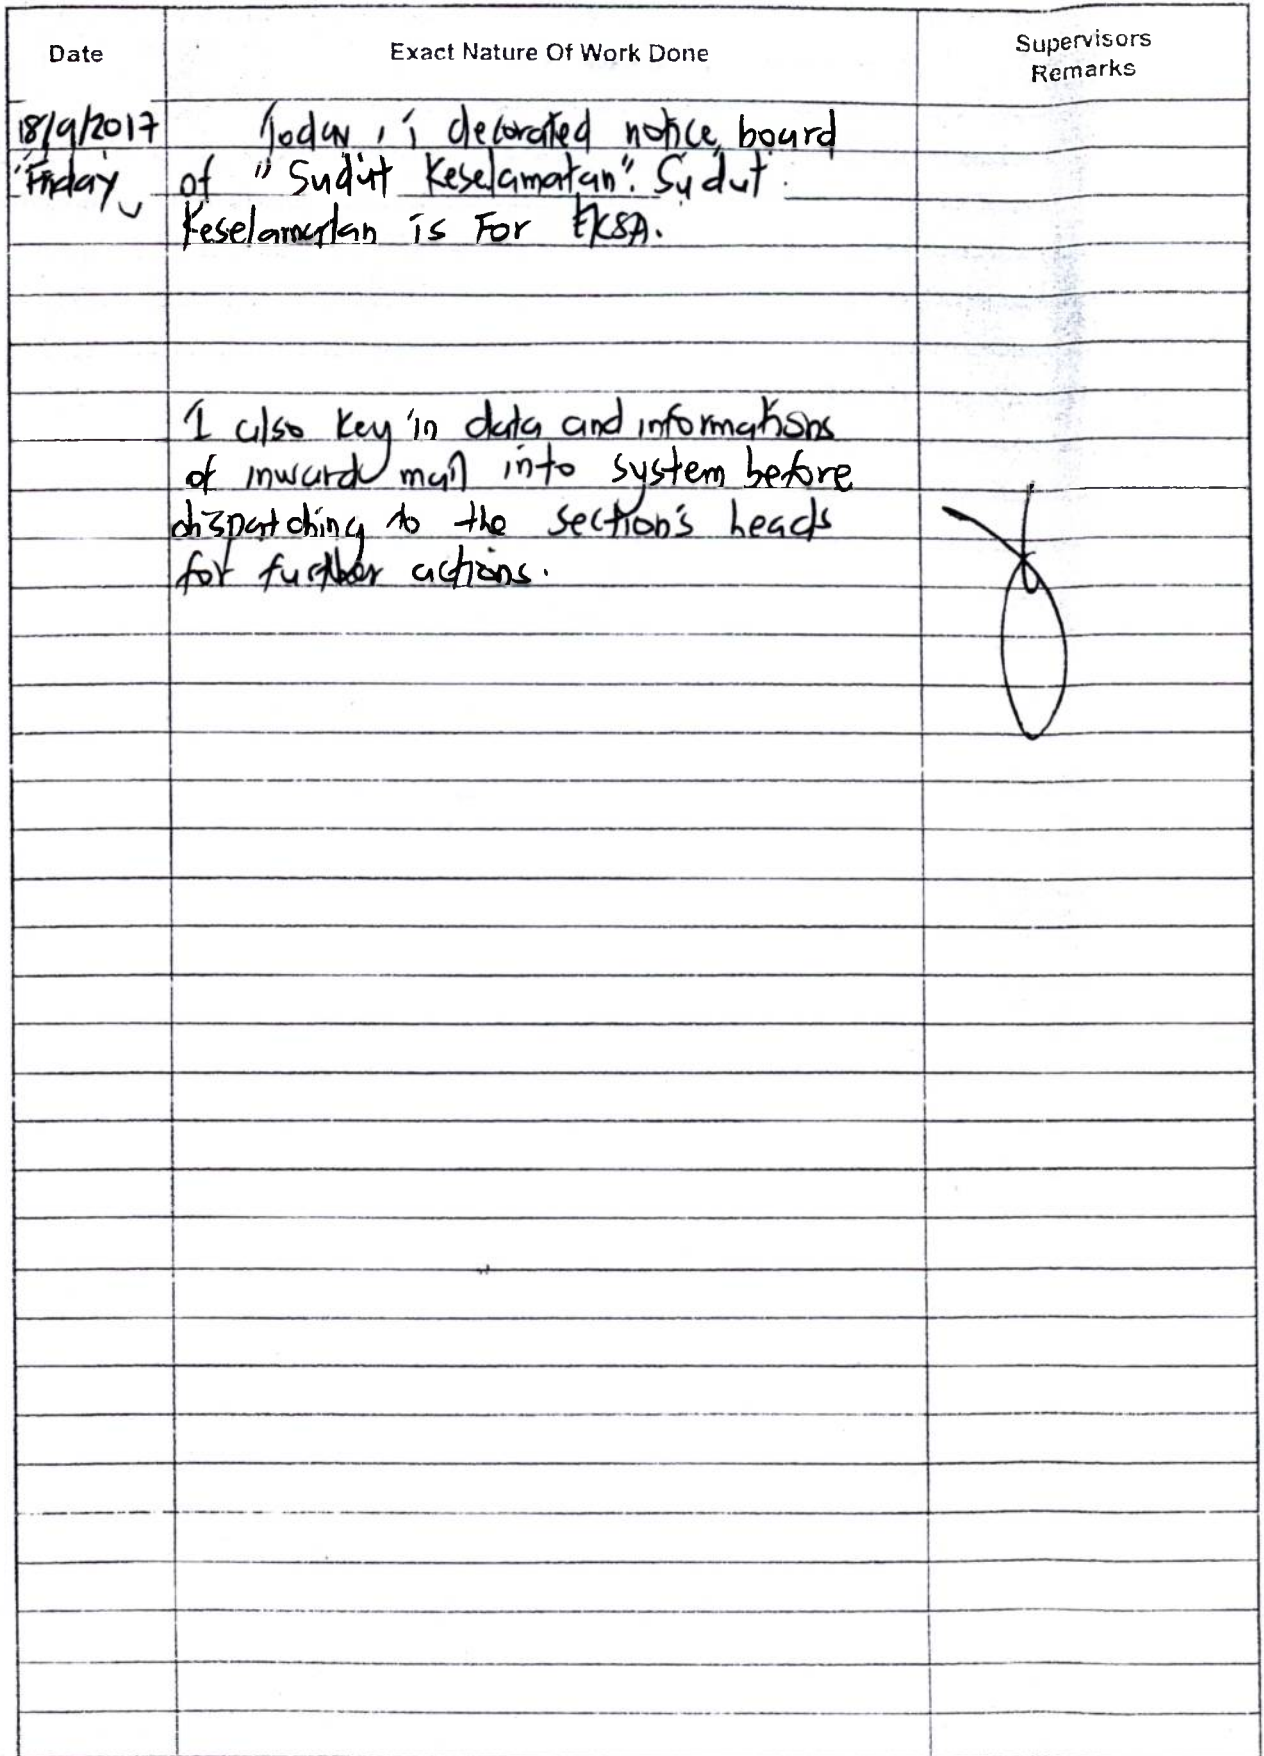 Date Exact Nature Of Work Done Supervisors
Remarks
18/9/2017 Today, i decorated notice board
Friday of "Sudut Keselamatan". Sudut
Keselamatan is For EKSA.
I also key in data and informations
of inward mail into system before
dispatching to the section's heads
for further actions.